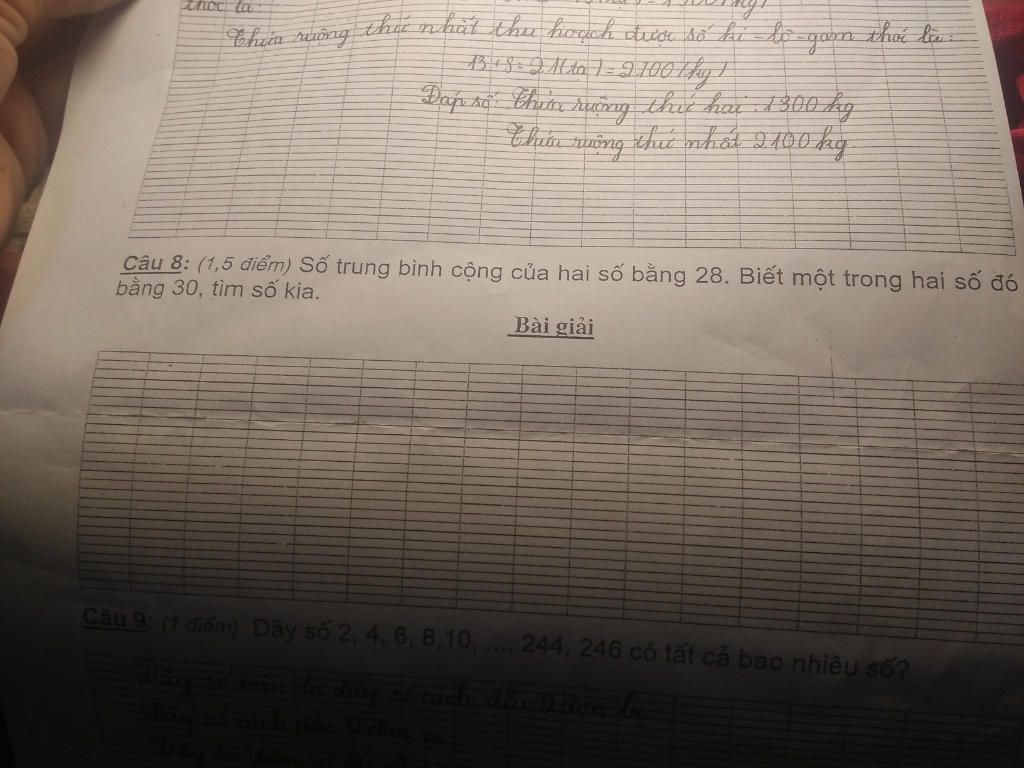 thóc là:
Thửa ruộng thứ nhất thu hoạch được số ki-lô-gam thóc là:
13 + 8 = 21 (tạ) = 2100 (kg)
Đáp số: Thửa ruộng thứ hai: 1300 kg
Thửa ruộng thứ nhất 2100 kg
Câu 8: (1,5 điểm) Số trung bình cộng của hai số bằng 28. Biết một trong hai số đó
bằng 30, tìm số kia.
Bài giải
Câu 9: (1 điểm) Dãy số 2, 4, 6, 8,10, ..., 244, 246 có tất cả bao nhiêu số?
Dãy số trên là dãy số cách đều 2 đơn vị
Dãy số cách đều 2 đơn vị
Dãy số